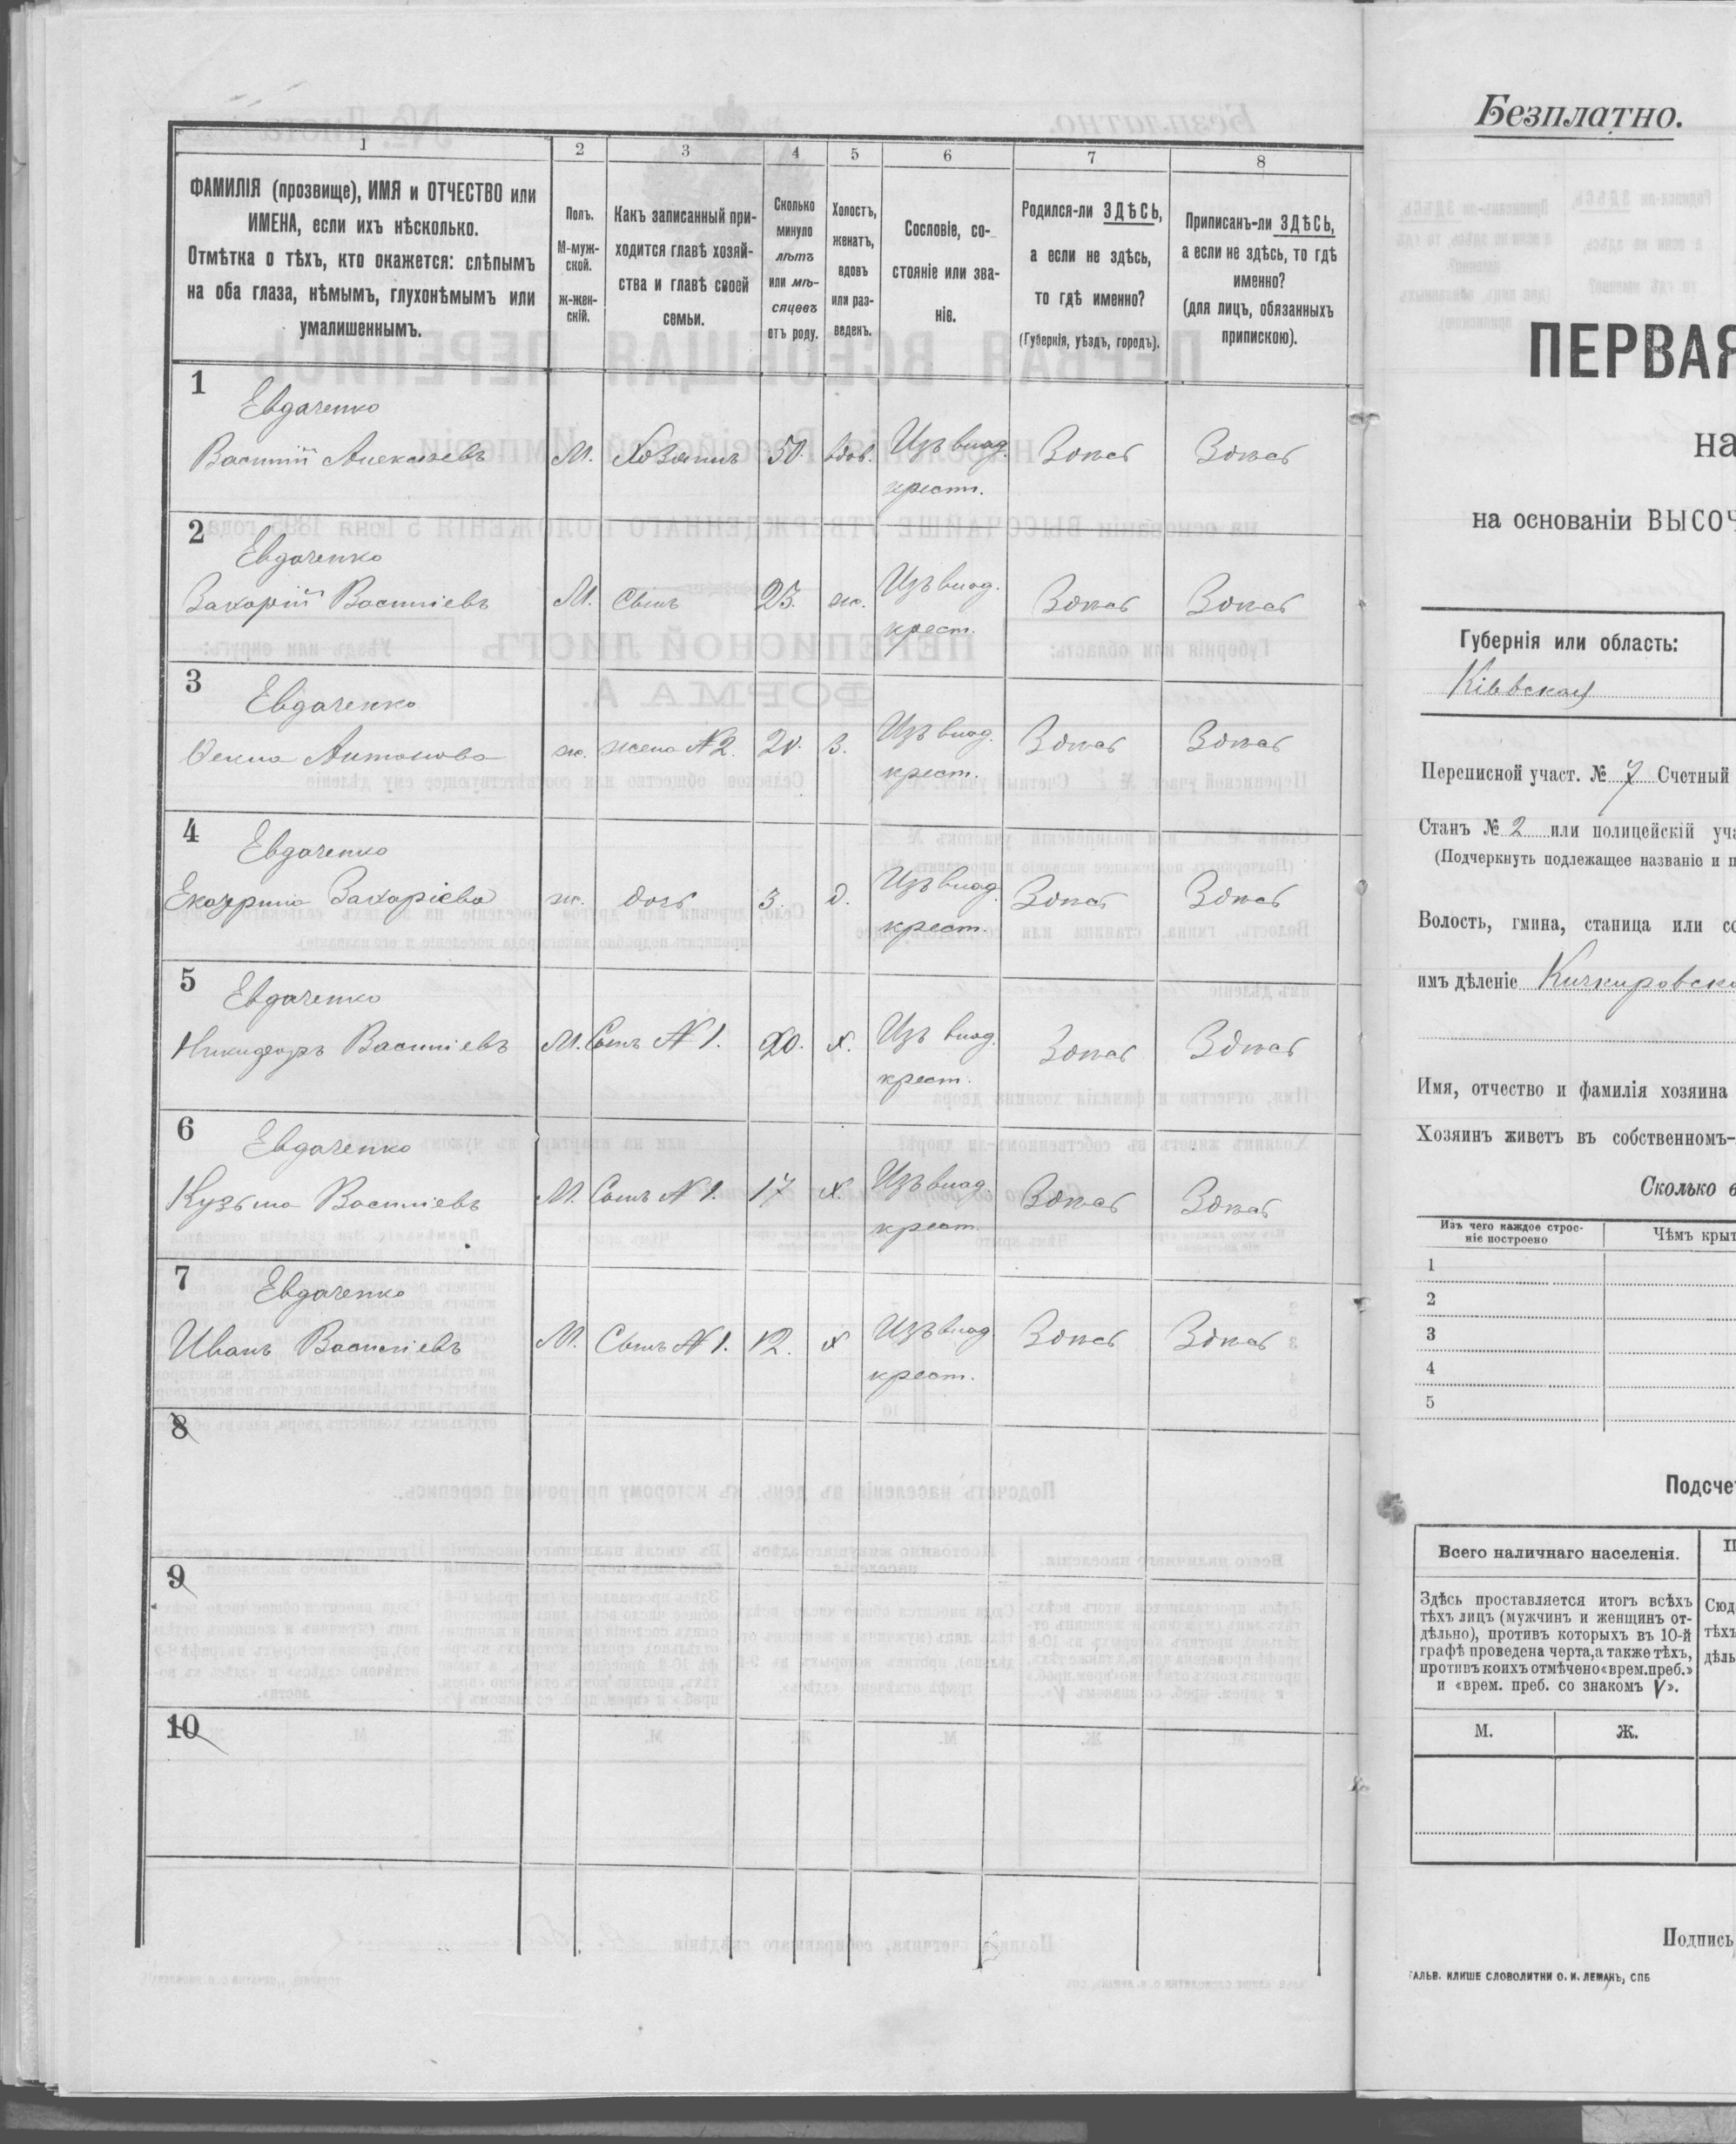 1
2
3
4
5
6
7
8
ФАМИЛІЯ (прозвище), ИМЯ и ОТЧЕСТВО или
ИМЕНА, если ихъ нѣсколько.
Отмѣтка о тѣхъ, кто окажется: слѣпымъ
на оба глаза, нѣмымъ, глухонѣмымъ или
умалишеннымъ.
Полъ.
М-муж-
ской.
ж-жен-
скій.
Какъ записанный при-
ходится главѣ хозяй-
ства и главѣ своей
семьи.
Сколько
минуло
лѣтъ
или мѣ-
сяцевъ
отъ роду.
Холостъ,
женатъ,
вдовъ
или раз-
веденъ.
Сословіе, со-
стояніе или зва-
ніе.
Родился-ли ЗДѢСЬ,
а если не здѣсь,
то гдѣ именно?
(Губернія, уѣздъ, городъ).
Приписанъ-ли ЗДѢСЬ,
а если не здѣсь, то гдѣ
именно?
(для лицъ, обязанныхъ
припискою).
1
Евдаченко
Василій Алексѣевъ М. Хозяинъ 50. вдов. Изъ влад. Здѣсь Здѣсь
крест.
2
Евдаченко
Захарій Василіевъ М. Сынъ 23. ж. Изъ влад. Здѣсь Здѣсь
крест.
3
Евдаченко
Фекла Антонова ж. жена №2. 20. З. Изъ влад. Здѣсь Здѣсь
крест.
4
Евдаченко
Захаріева ж. дочь 3. д. Изъ влад. Здѣсь Здѣсь
крест.
5
Евдаченко
Никифоръ Василіевъ М. Сынъ №1. 20. х. Изъ влад. Здѣсь Здѣсь
крест.
6
Евдаченко
Кузьма Василіевъ М. Сынъ №1. 17 х. Изъ влад. Здѣсь Здѣсь
крест.
7
Евдаченко
Иванъ Василіевъ М. Сынъ №1. 12. х Изъ влад. Здѣсь Здѣсь
крест.
8
9
10
Безплатно.
ПЕРВАЯ
на
на основаніи ВЫСОЧ
Губернія или область:
Кіевская
Переписной участ. № 7 Счетный
Станъ № 2 или полицейскій уча
(Подчеркнуть подлежащее названіе и п
Волость, гмина, станица или со
имъ дѣленіе Кичкировска
Имя, отчество и фамилія хозяина
Хозяинъ живетъ въ собственномъ-
Сколько в
Изъ чего каждое строе-
ніе построено
Чѣмъ крыт
1
2
3
4
5
Подсчет
Всего наличнаго населенія.
П
Здѣсь проставляется итогъ всѣхъ
тѣхъ лицъ (мужчинъ и женщинъ от-
дѣльно), противъ которыхъ въ 10-й
графѣ проведена черта,а также тѣхъ,
противъ коихъ отмѣчено «врем.преб.»
и «врем. преб. со знакомъ V».
Сюд
тѣхъ
дѣль
М.
Ж.
Подпись
ГАЛЬВ. КЛИШЕ СЛОВОЛИТНИ О. И. ЛЕМАНЪ, СПБ